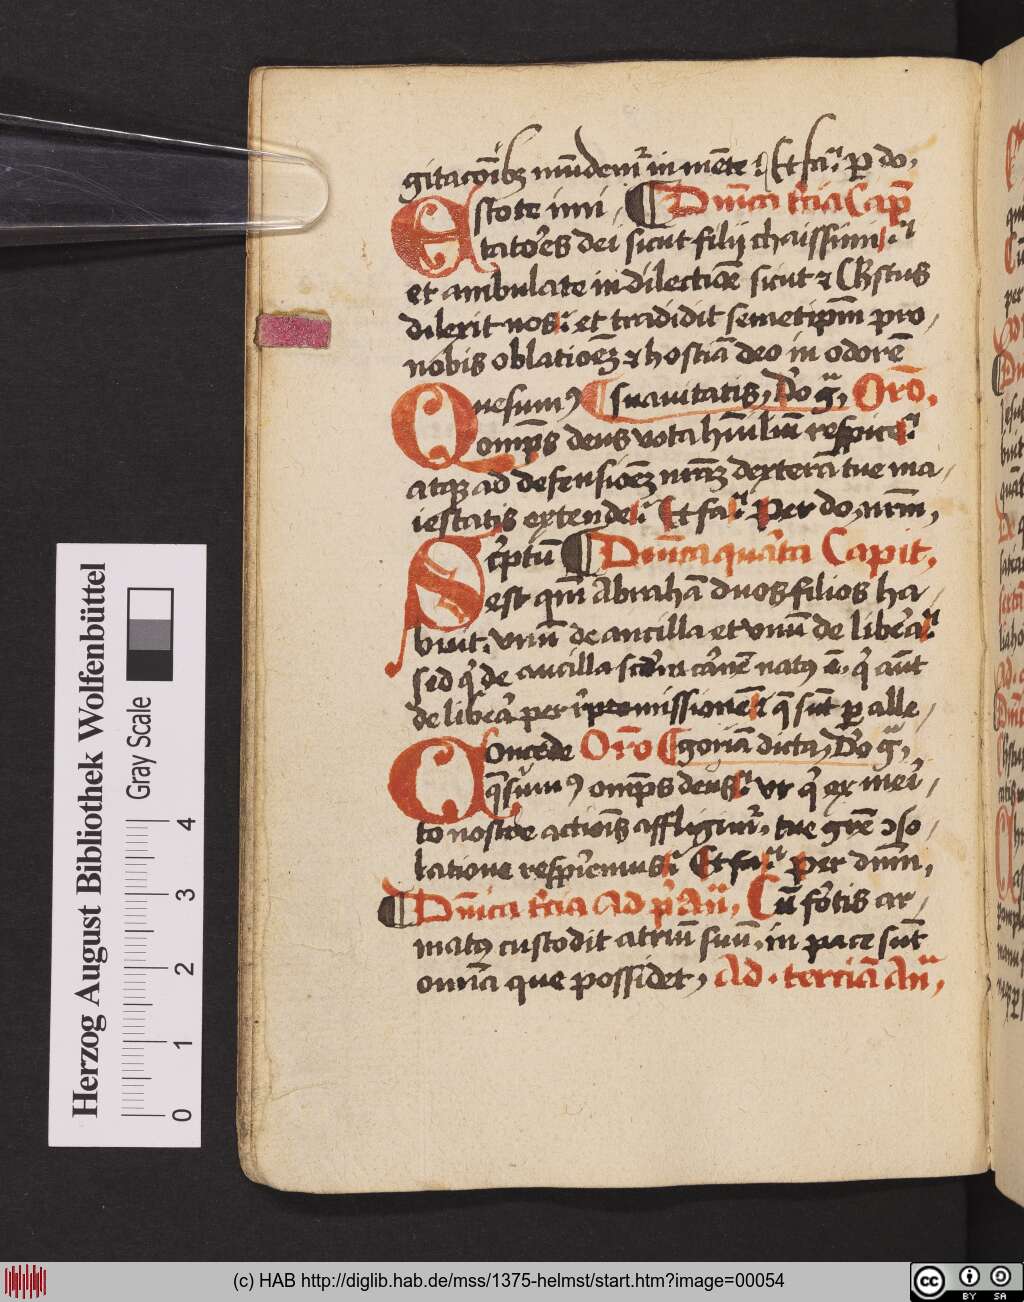 gitacōibꝫ mūdemʳ in mēte ⁊ Et faᷓ ꝑ do.
Estote imi ¶ Dnīca t̄cia Cap̄
tatōes dei sicut filij chaissimi
et ambulate in dilectiōe sicut ⁊ Chr̄stus
dilexit nos: et tradidit semetip̄m pro
nobis oblatiōeꝫ ⁊ hostiā deo in odorē
Quesumꝰ ¶ suauitatis, Dō gᷓ, Orō.
omp̄s deus vota hūiliū respice
atqꝫ ad defensiōeꝫ nr̄aꝫ dexterā tue ma
iestatis extende: Et faᷓ Per do. nrm̄,
Scͥptū ¶ Dnīca quarta Capit.
est qm̄ Abrahā duos filios ha
buit. vnū de ancilla et vnū de libera
sed qͥ de ancilla scd̄m carnē natꝰ ē. qͥ aūt
de libera per repromissionē: q̄ sūt ꝑ alle
Concede Orō ¶ goriā dicta, Dō gᷓ,
q̄sumꝰ omp̄s deus: vt qͥ ex meri
to nostre actiōis affligimʳ, tue gr̄e ↄso
latione respiremus: Et faᷓ per dnm̄,
¶ Dnīca t̄cia Ad pͥ Añ, Cū fortis ar
matꝰ custodit atriū suū, in pace sūt
omīa que possidet, Ad . terciā Añ,
Herzog August Bibliothek Wolfenbüttel
Gray Scale
0 1 2 3 4
(c) HAB http://diglib.hab.de/mss/1375-helmst/start.htm?image=00054
cc BY SA